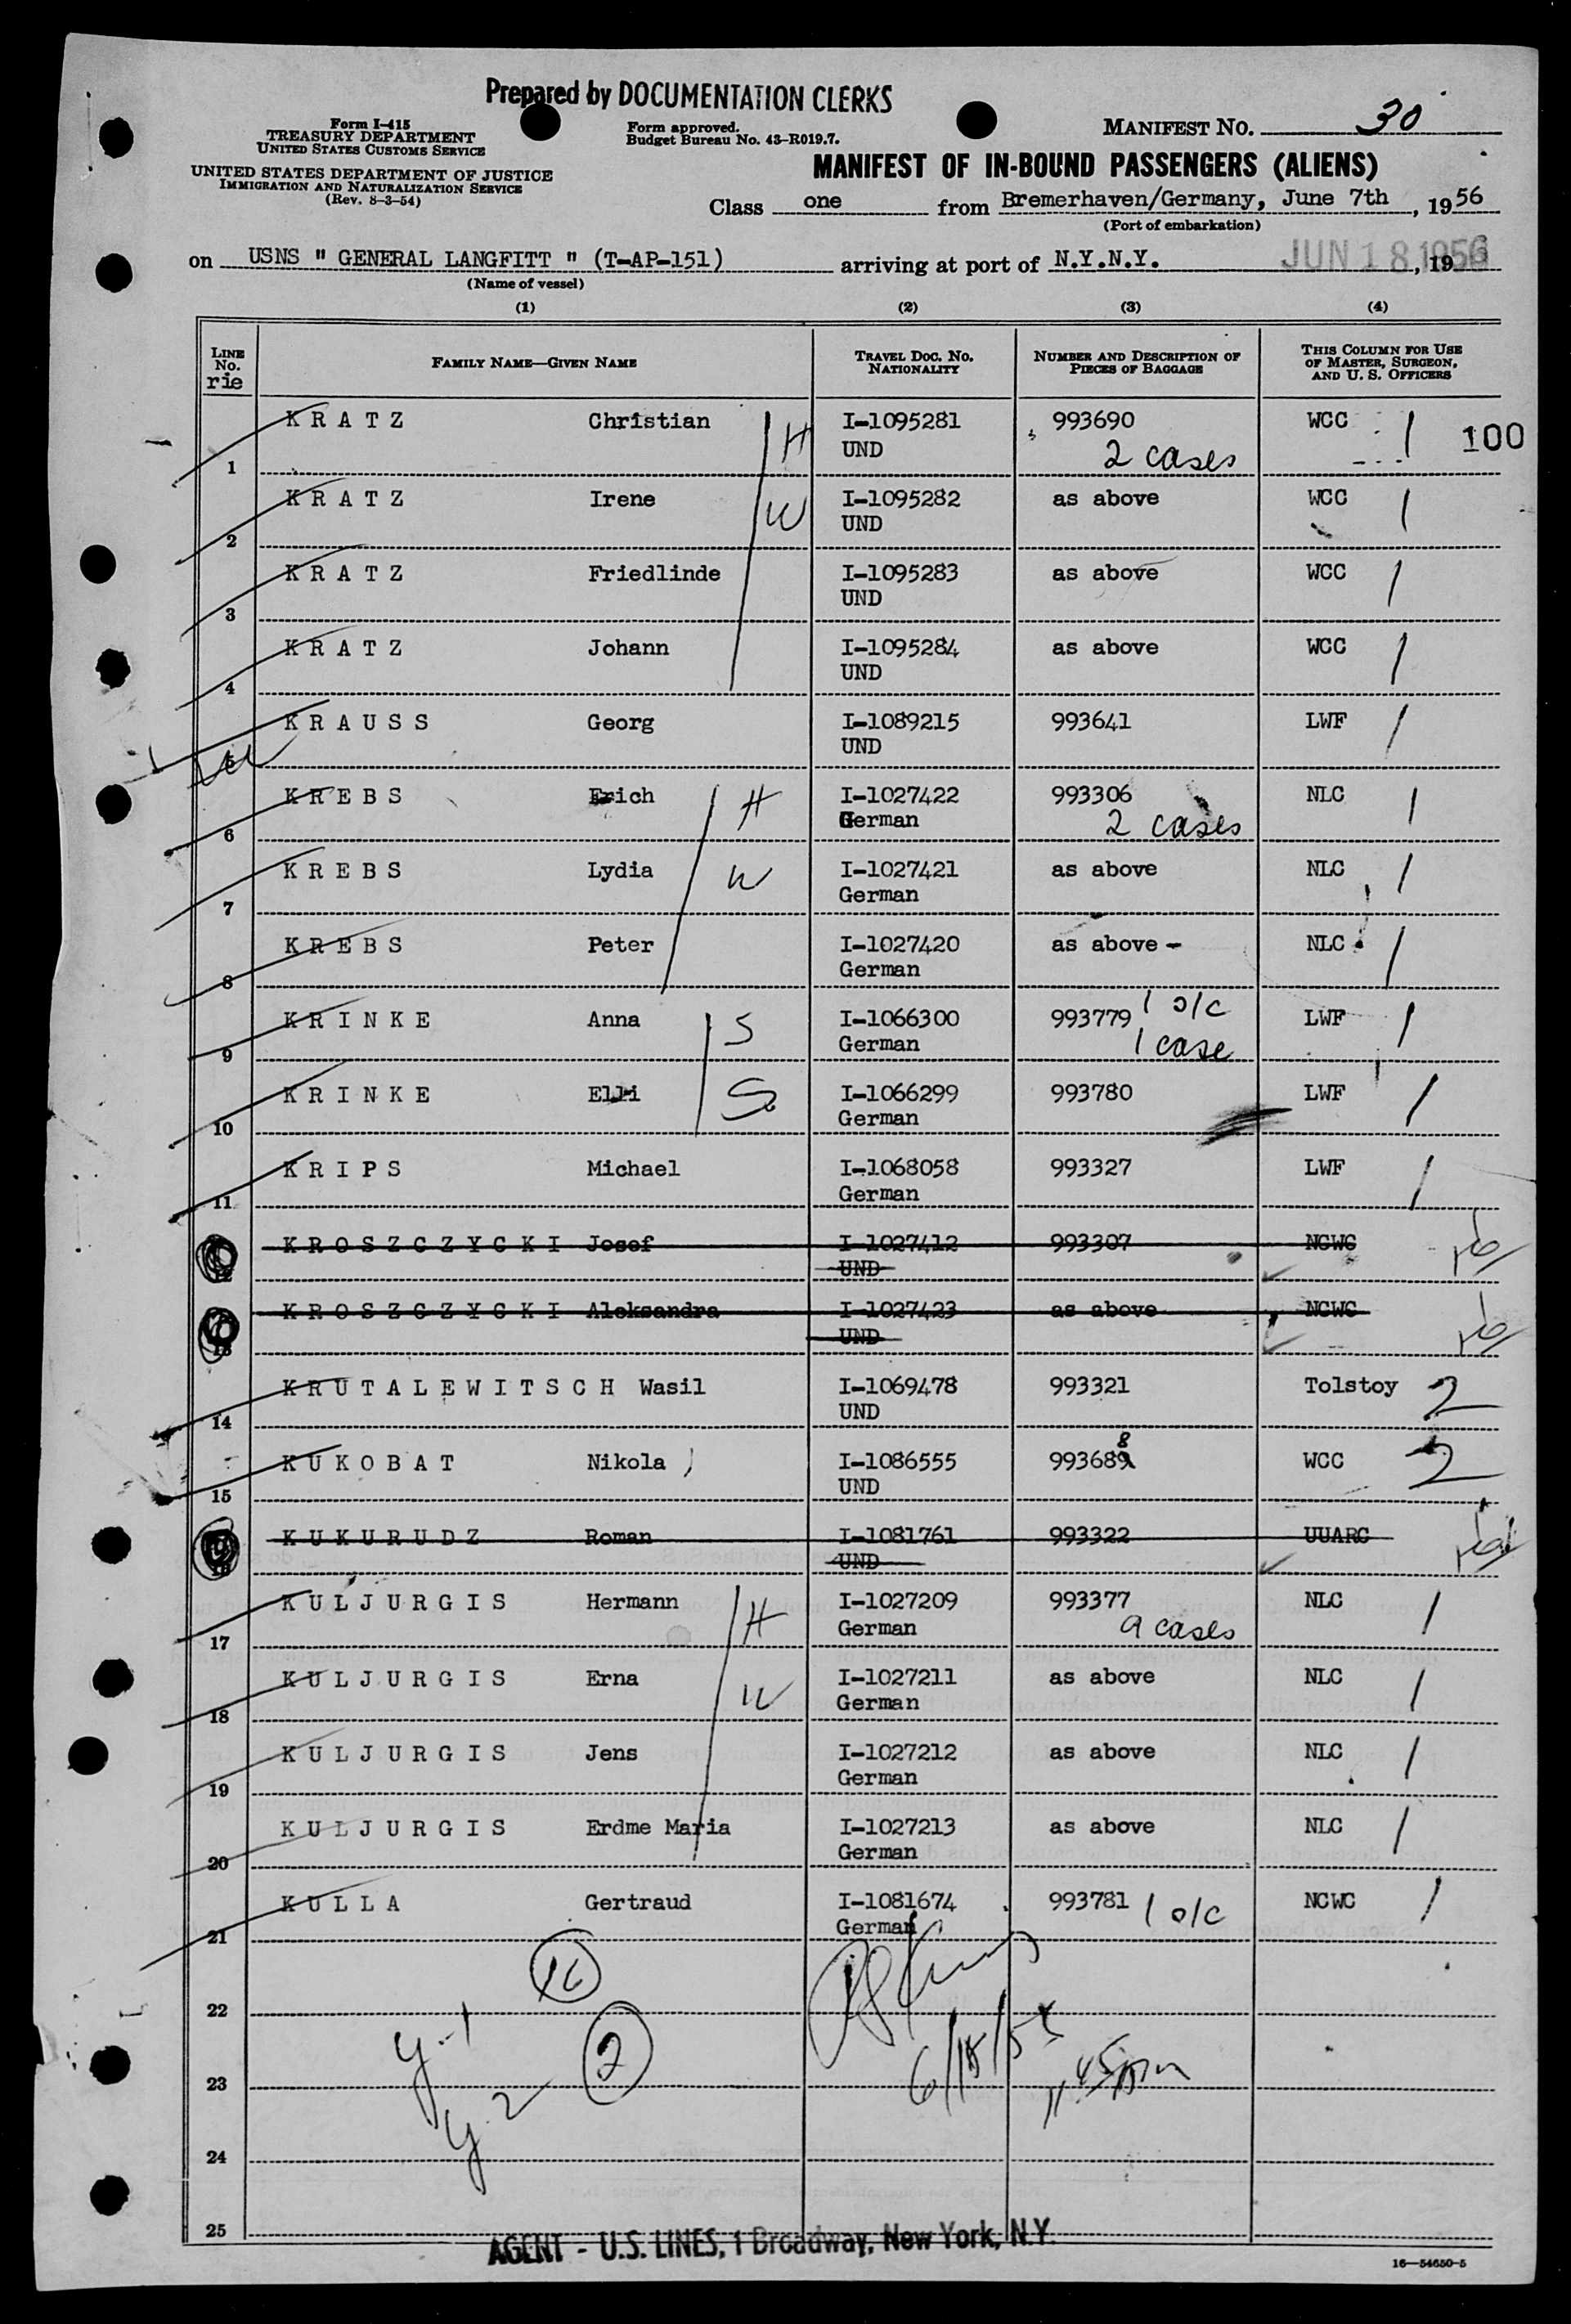 Prepared by DOCUMENTATION CLERKS
Form I-415
TREASURY DEPARTMENT
UNITED STATES CUSTOMS SERVICE
UNITED STATES DEPARTMENT OF JUSTICE
IMMIGRATION AND NATURALIZATION SERVICE
(Rev. 8-3-54)
Form approved.
Budget Bureau No. 43-R019.7.
MANIFEST NO. 30
MANIFEST OF IN-BOUND PASSENGERS (ALIENS)
Class one from Bremerhaven/Germany, June 7th, 1956
(Port of embarkation)
on USNS " GENERAL LANGFITT " (T-AP-151) arriving at port of N.Y.N.Y. JUN 18 1956, 19
(Name of vessel)
(1) (2) (3) (4)
LINE No. rie FAMILY NAME—GIVEN NAME TRAVEL DOC. NO. NATIONALITY NUMBER AND DESCRIPTION OF PIECES OF BAGGAGE THIS COLUMN FOR USE OF MASTER, SURGEON, AND U. S. OFFICERS
K R A T Z Christian H I-1095281 993690 WCC / 100
1 UND 2 cases
K R A T Z Irene W I-1095282 as above WCC /
2 UND
K R A T Z Friedlinde I-1095283 as above WCC /
3 UND
K R A T Z Johann I-1095284 as above WCC /
4 UND
K R A U S S Georg I-1089215 993641 LWF /
5 UND
K R E B S Erich H I-1027422 993306 NLC /
6 German 2 cases
K R E B S Lydia W I-1027421 as above NLC /
7 German
K R E B S Peter I-1027420 as above - NLC /
8 German
K R I N K E Anna S I-1066300 993779 1 o/c LWF /
9 German 1 case
K R I N K E Elli S I-1066299 993780 LWF /
10 German
K R I P S Michael I-1068058 993327 LWF /
11 German
K R O S Z C Z Y C K I Josef I-1027412 993307 NCWC
12 UND
K R O S Z C Z Y C K I Aleksandra I-1027423 as above NCWC
13 UND
K R U T A L E W I T S C H Wasil I-1069478 993321 Tolstoy 2
14 UND
K U K O B A T Nikola I-1086555 993688 WCC 2
15 UND
K U K U R U D Z Roman I-1081761 993322 UUARC
16 UND
K U L J U R G I S Hermann H I-1027209 993377 NLC /
17 German 9 cases
K U L J U R G I S Erna W I-1027211 as above NLC /
18 German
K U L J U R G I S Jens I-1027212 as above NLC /
19 German
K U L J U R G I S Erdme Maria I-1027213 as above NLC /
20 German
K U L L A Gertraud I-1081674 993781 1 o/c NCWC /
21 German
16
22
y-1 2 6/18/56 11:45pm
23
y-2
24
25
AGENT - U.S. LINES, 1 Broadway, New York, N.Y.
16—54650-5